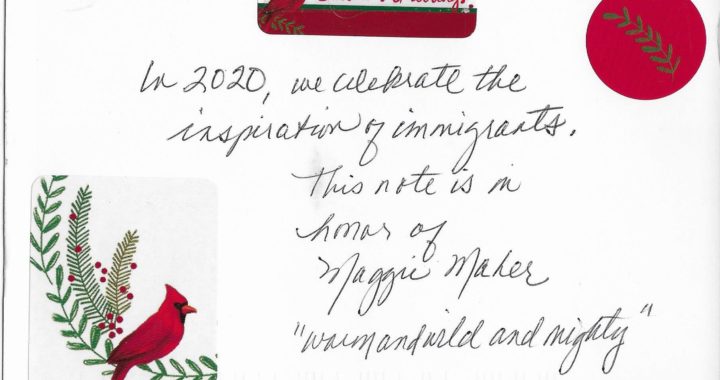 In 2020, we celebrate the
inspiration of immigrants.
This note is in
honor of
Maggie Maher
"warm and wild and mighty"